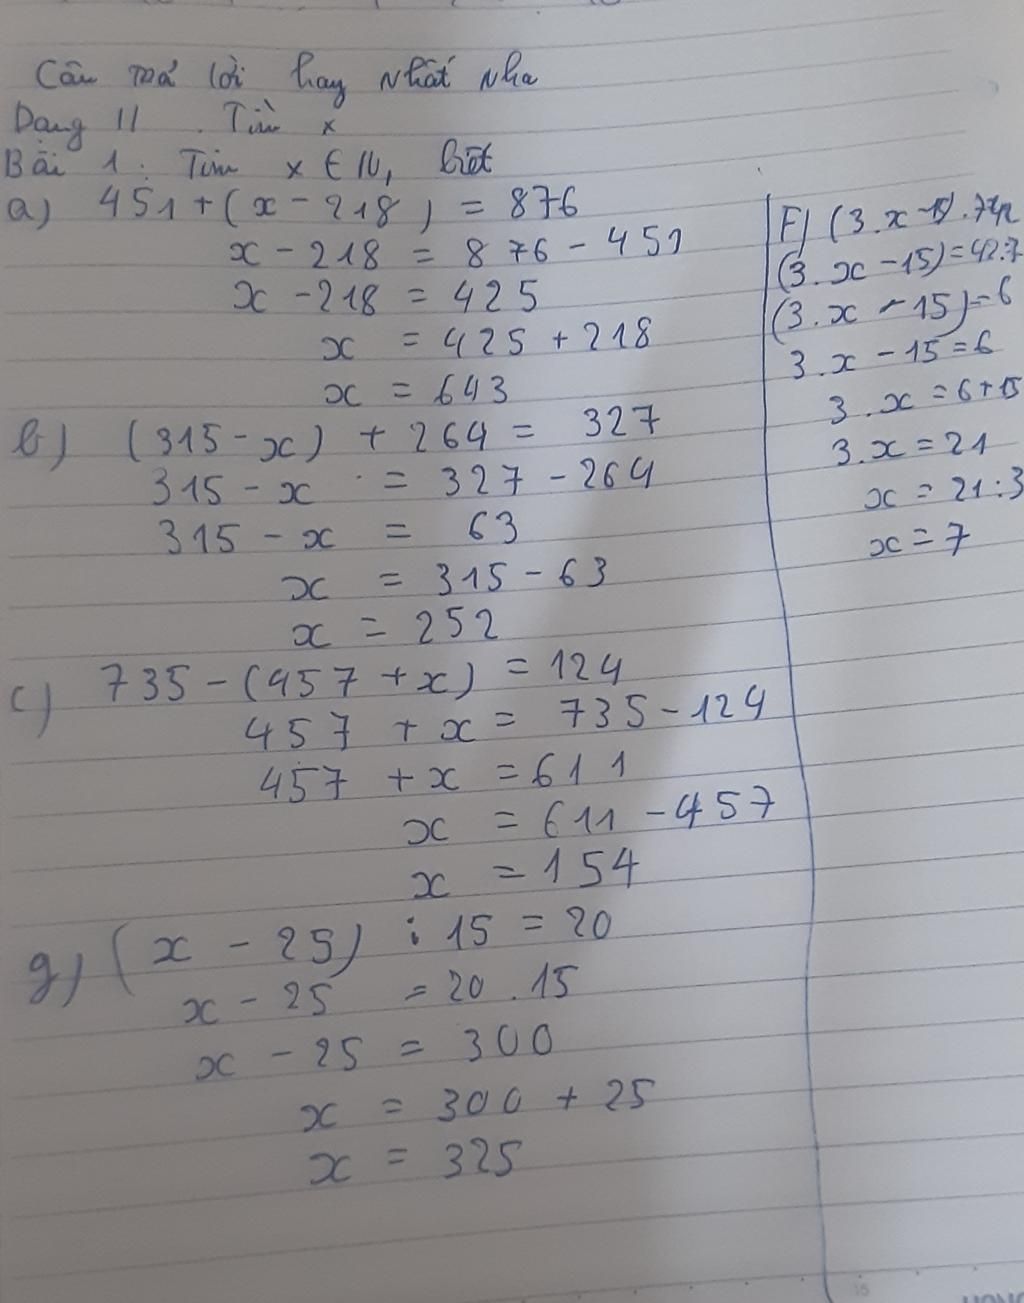 Câu trả lời hay nhất nha
Dạng II . Tìm x
Bài 1 : Tìm x ∈ N, biết
a) 451 + (x - 218) = 876
x - 218 = 876 - 451
x - 218 = 425
x = 425 + 218
x = 643
b) (315 - x) + 264 = 327
315 - x = 327 - 264
315 - x = 63
x = 315 - 63
x = 252
c) 735 - (457 + x) = 124
457 + x = 735 - 124
457 + x = 611
x = 611 - 457
x = 154
g) (x - 25) : 15 = 20
x - 25 = 20 . 15
x - 25 = 300
x = 300 + 25
x = 325
F) (3.x - 15) . 7
(3.x - 15) = 42:7
(3.x - 15) = 6
3.x - 15 = 6
3.x = 6 + 15
3.x = 21
x = 21 : 3
x = 7